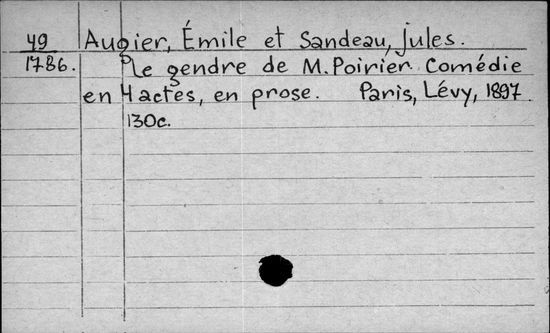 49 Augier, Émile et Sandeau, Jules.
1786. Le gendre de M. Poirier. Comédie
en 4 actes, en prose. Paris, Lévy, 1897
130c.